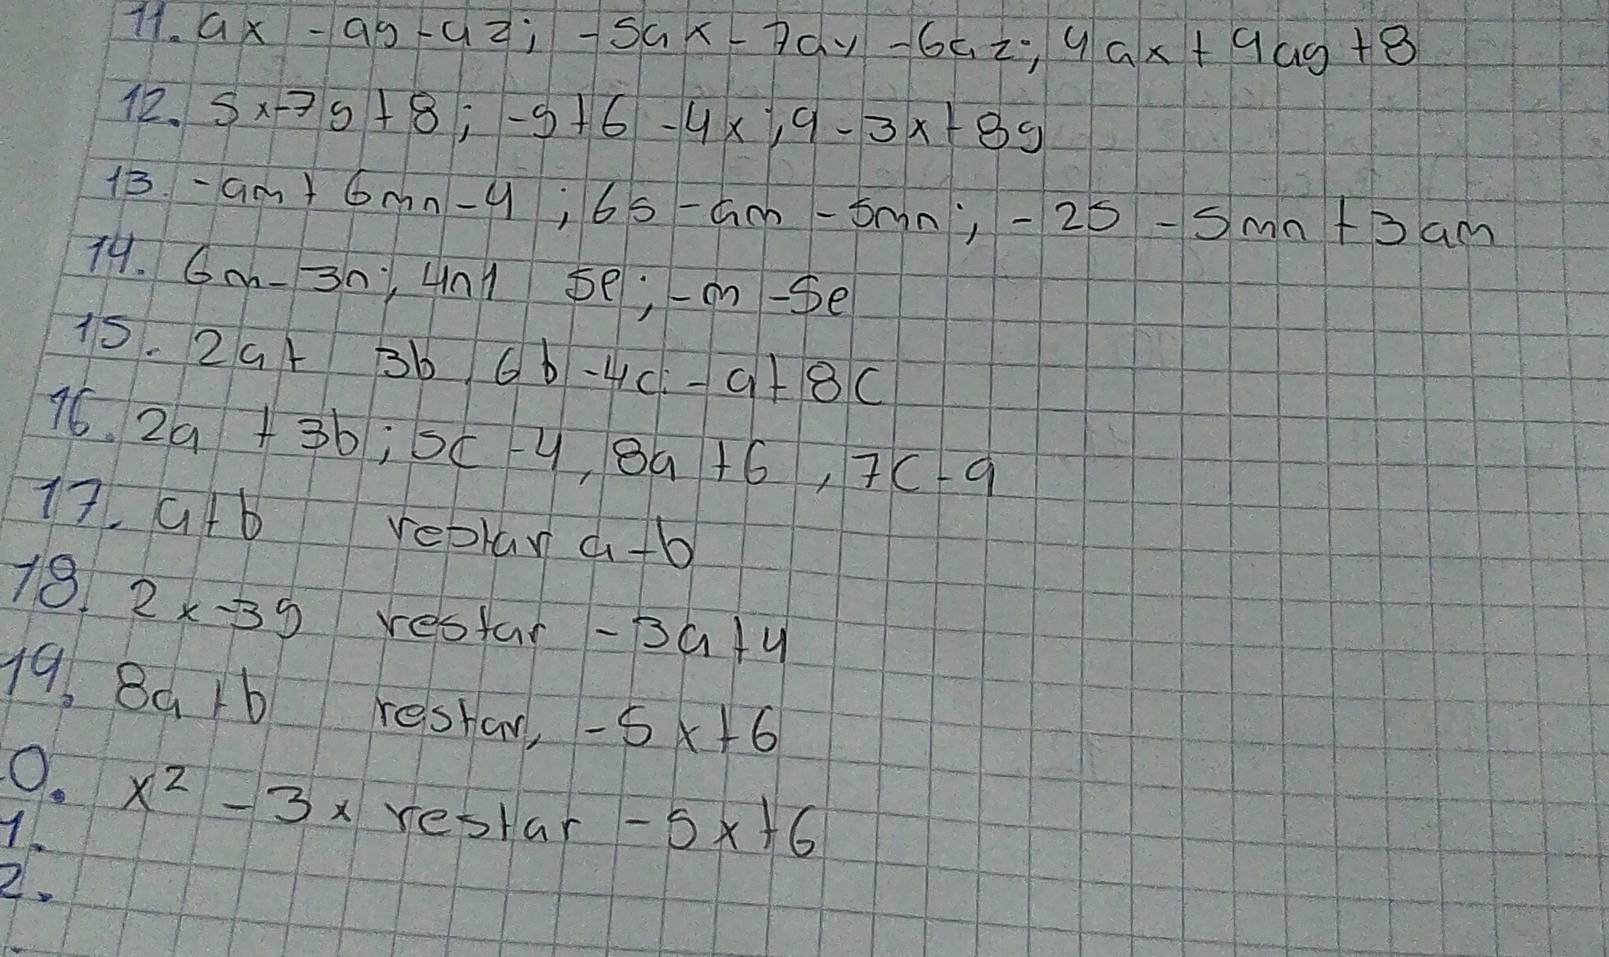 11. ax - ay - az; -5ax - 7ay - 6az; 4ax + 9ay + 8
12. 5x - 7y + 8; -y + 6 - 4x; 9 - 3x + 8y
13. -am + 6mn - 4; 6s - am - 5mn; -2s - 5mn + 3am
14. 6m - 3n; 4n 5p; -m - 5p
15. 2a + 3b, 6b - 4c; -a + 8c
16. 2a + 3b; 5c - 4, 8a + 6, 7c - 9
17. a + b restar a - b
18. 2x - 3y restar - 3a + 4
19. 8a + b restar, - 5x + 6
0. x² - 3x restar - 5x + 6
1.
2.